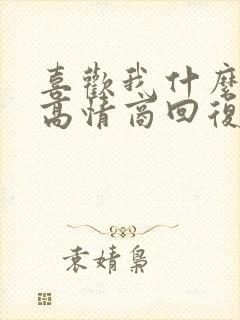 喜歡我什麼
高情商回復
袁婧梟